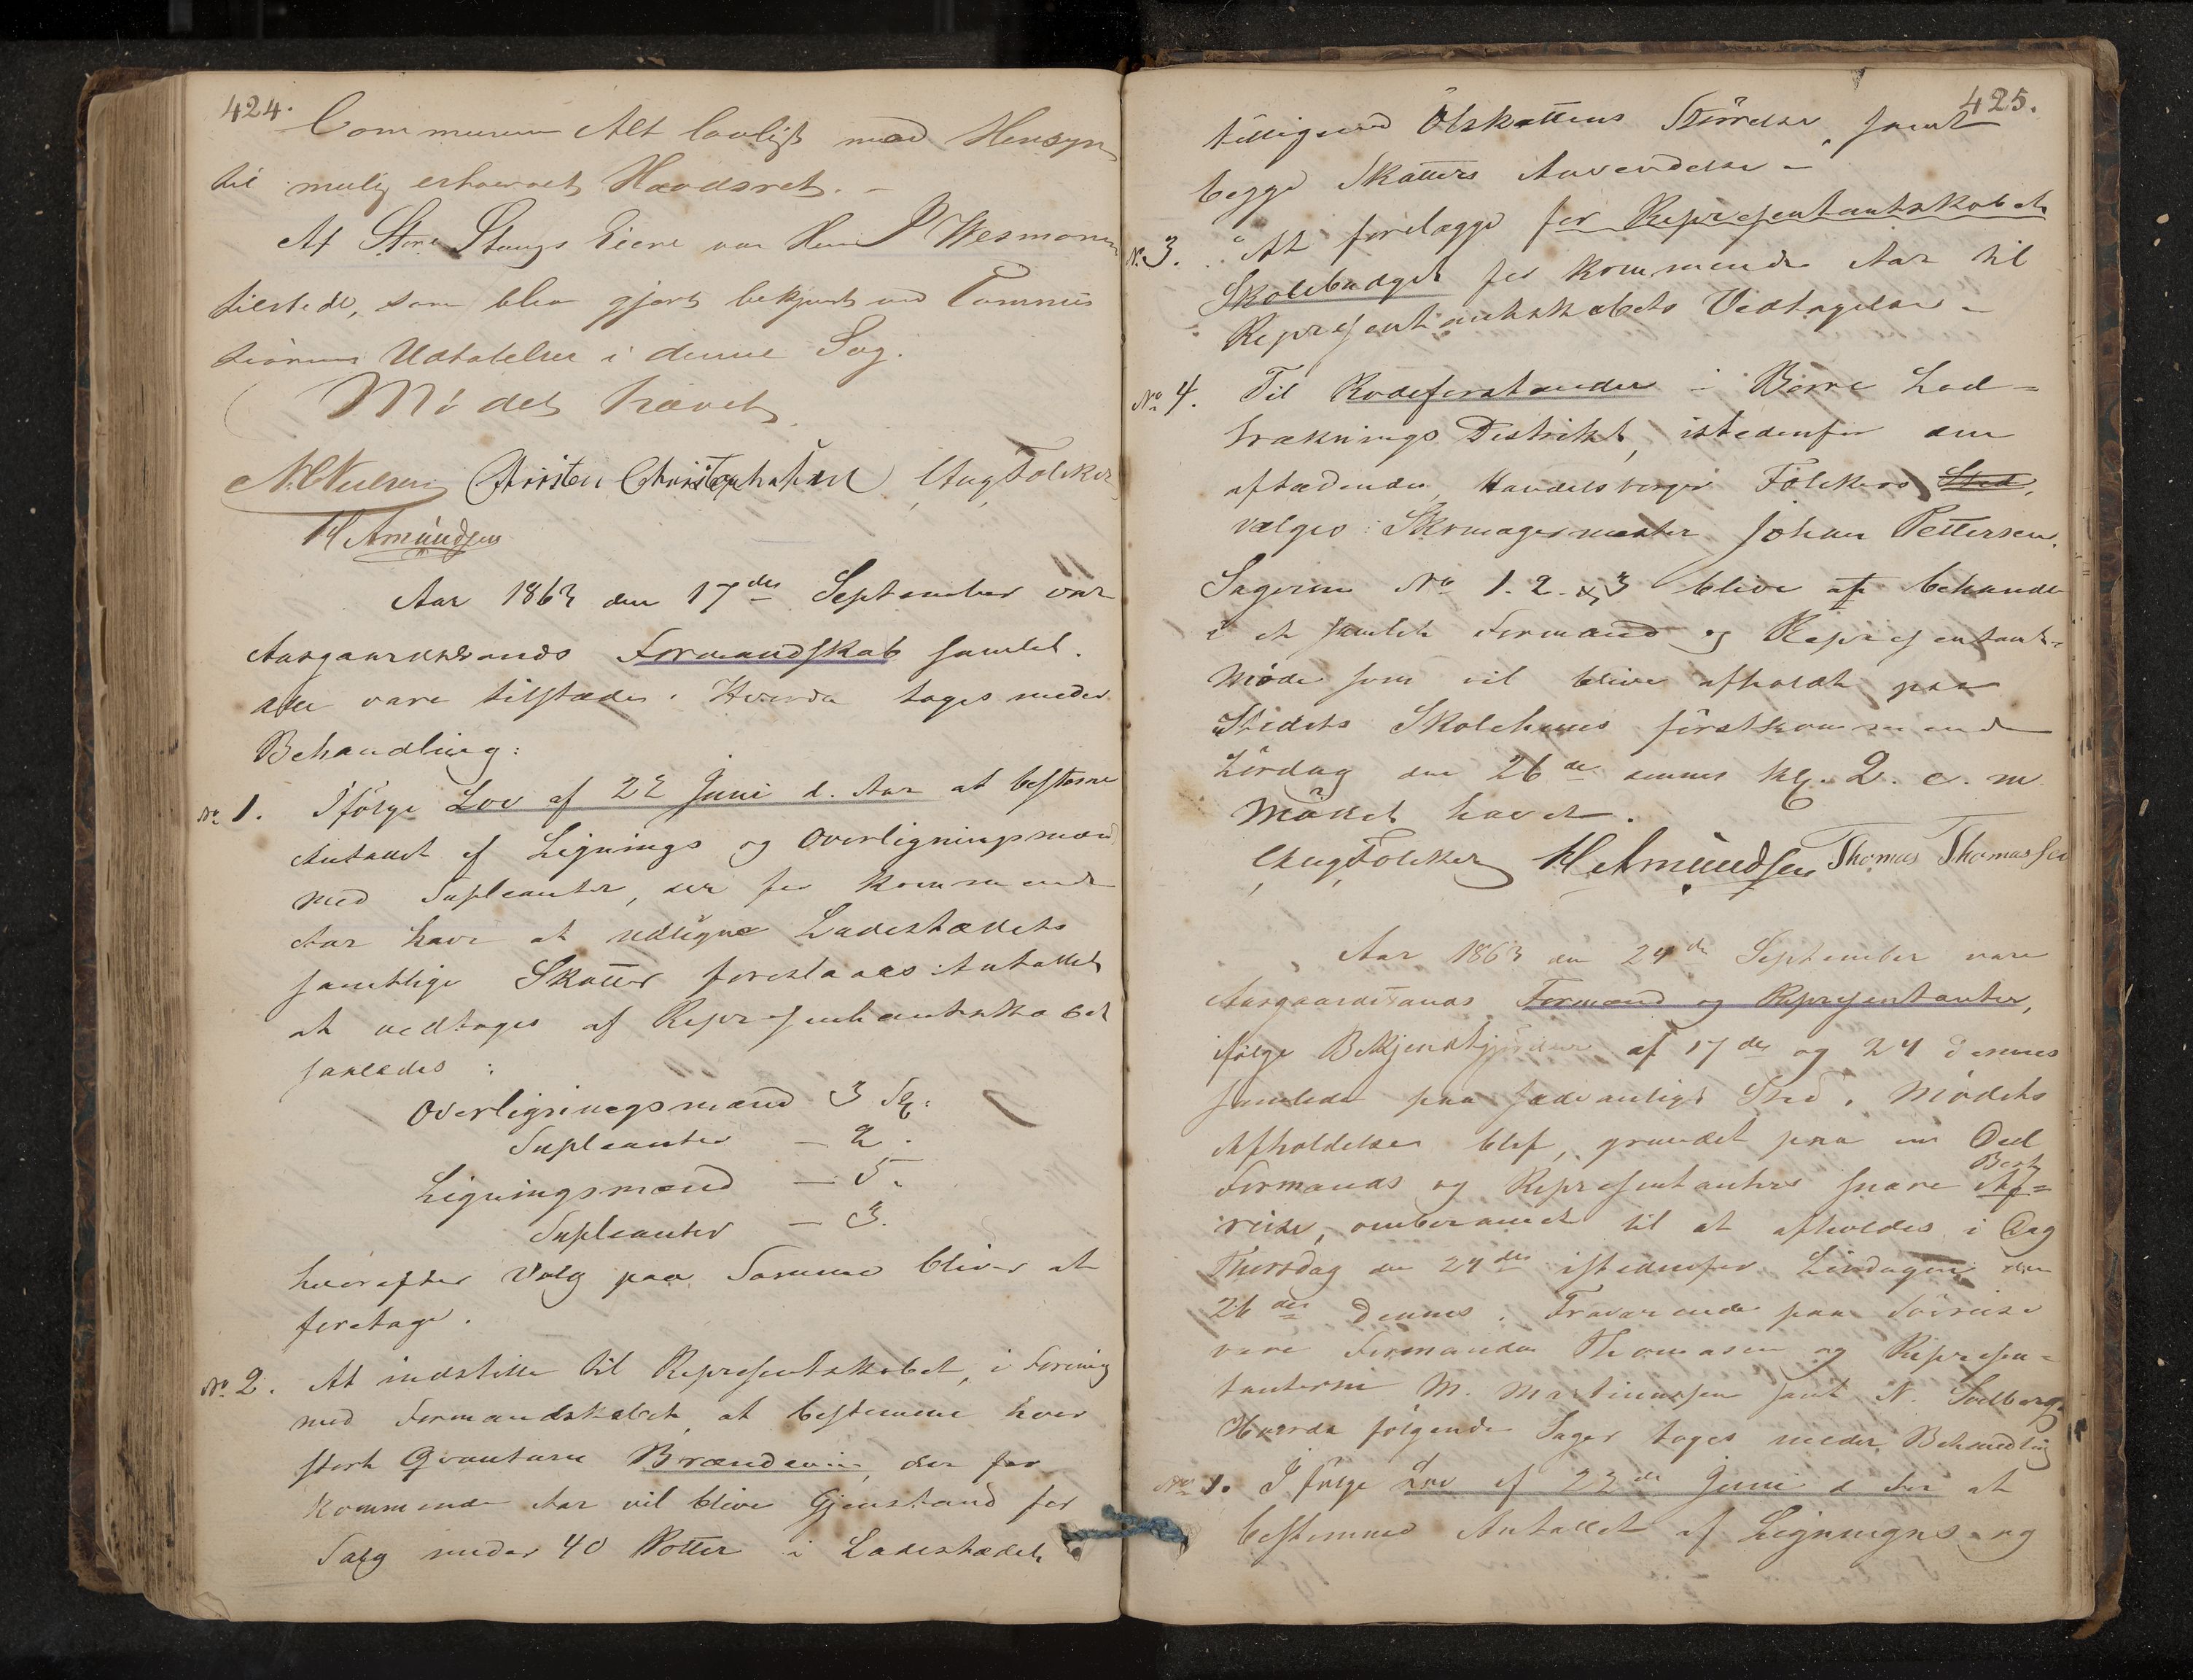 424.
Communen Alt lovligt med Hensyn
til mulig erhvervet Hævdsret. –
Af Store Stangs Eiere var Herr Wesmann
tilstede, som blev gjort bekjendt med Commis
sionens Udtalelser i denne Sag.
Mødet hævet
N. Nielsen Christen Christophersen Aug Folcker
H Amundsen
Aar 1863 den 17de September var
Aasgaardstrands Formandskab samlet.
alle vare tilstæde. Hvorda toges under
Behandling:
No 1. Ifølge Lov af 22 Juni d. Aar at besteme
Antallet af Lignings og Overligningsmænd
med Supleanter, der for kommende
Aar have at udligne Ladestædets
samtlige Skatter foreslaaes Antallet
at vedtages af Repræsentantskabet
saaledes :
Overligningsmænd 3 Stk:
Supleanter – 2.
Ligningsmænd – 5.
Supleanter – 3.
hvorefter Valg paa Samme bliver at
foretage.
No 2. At indstille til Represents­kabet, i Forening
med Formandskabet, at bestemme hvor
stort Qvantum Brændevin, der for
kommende Aar vil blive Gjenstand for
Salg under 40 Potter i Ladestædet
425.
tilligemed Ølskattens Størrelse samt
begge Skatters Anvendelse –
No 3. At forelægge for Representantskabet
Skolebudget for kommende Aar til
Representantskabets Vedtagelse –
No 4. Til Rodeforstander i Borre Lod=
træknings Distrikt, istedenfor den
aftrædende, Handelsborger Folckers Sted,
vælges: Skomagermester Johan Pettersen.
Sagerne No 1. 2. & 3 blive at behandle
i et samlet Formænd og Representant=
Møde som vil blive afholdt paa
Stedets Skolehuus førstkommende
Lördag den 26de dennes Kl. 2. e. m.
Mødet hævet.
Aug Folcker H Amundsen Thomas Thomassen
Aar 1863 den 24de September vare
Aasgaardstrands Formænd og Representanter,
ifølge Bekjendtgjørelse af 17de og 24 dennes
samlede paa sædvanligt Sted. Mødets
Afholdelse blef, grundet paa en Deel
Formænds og Representanters snare Bort
Af=
reise, omberammet til at afholdes i Dag
Thorsdag den 24de istedenfor Lördagen den
26de Dennes. Fraværende paa Söreise
vare Formanden Thomasen og Represen=
tanterne M. Martinussen samt N. Solberg.
Hvorda følgende Sager toges under Behandling
No 1. I følge Lov af 22de Juni d Aar at
bestemme Antallet af Lignings og